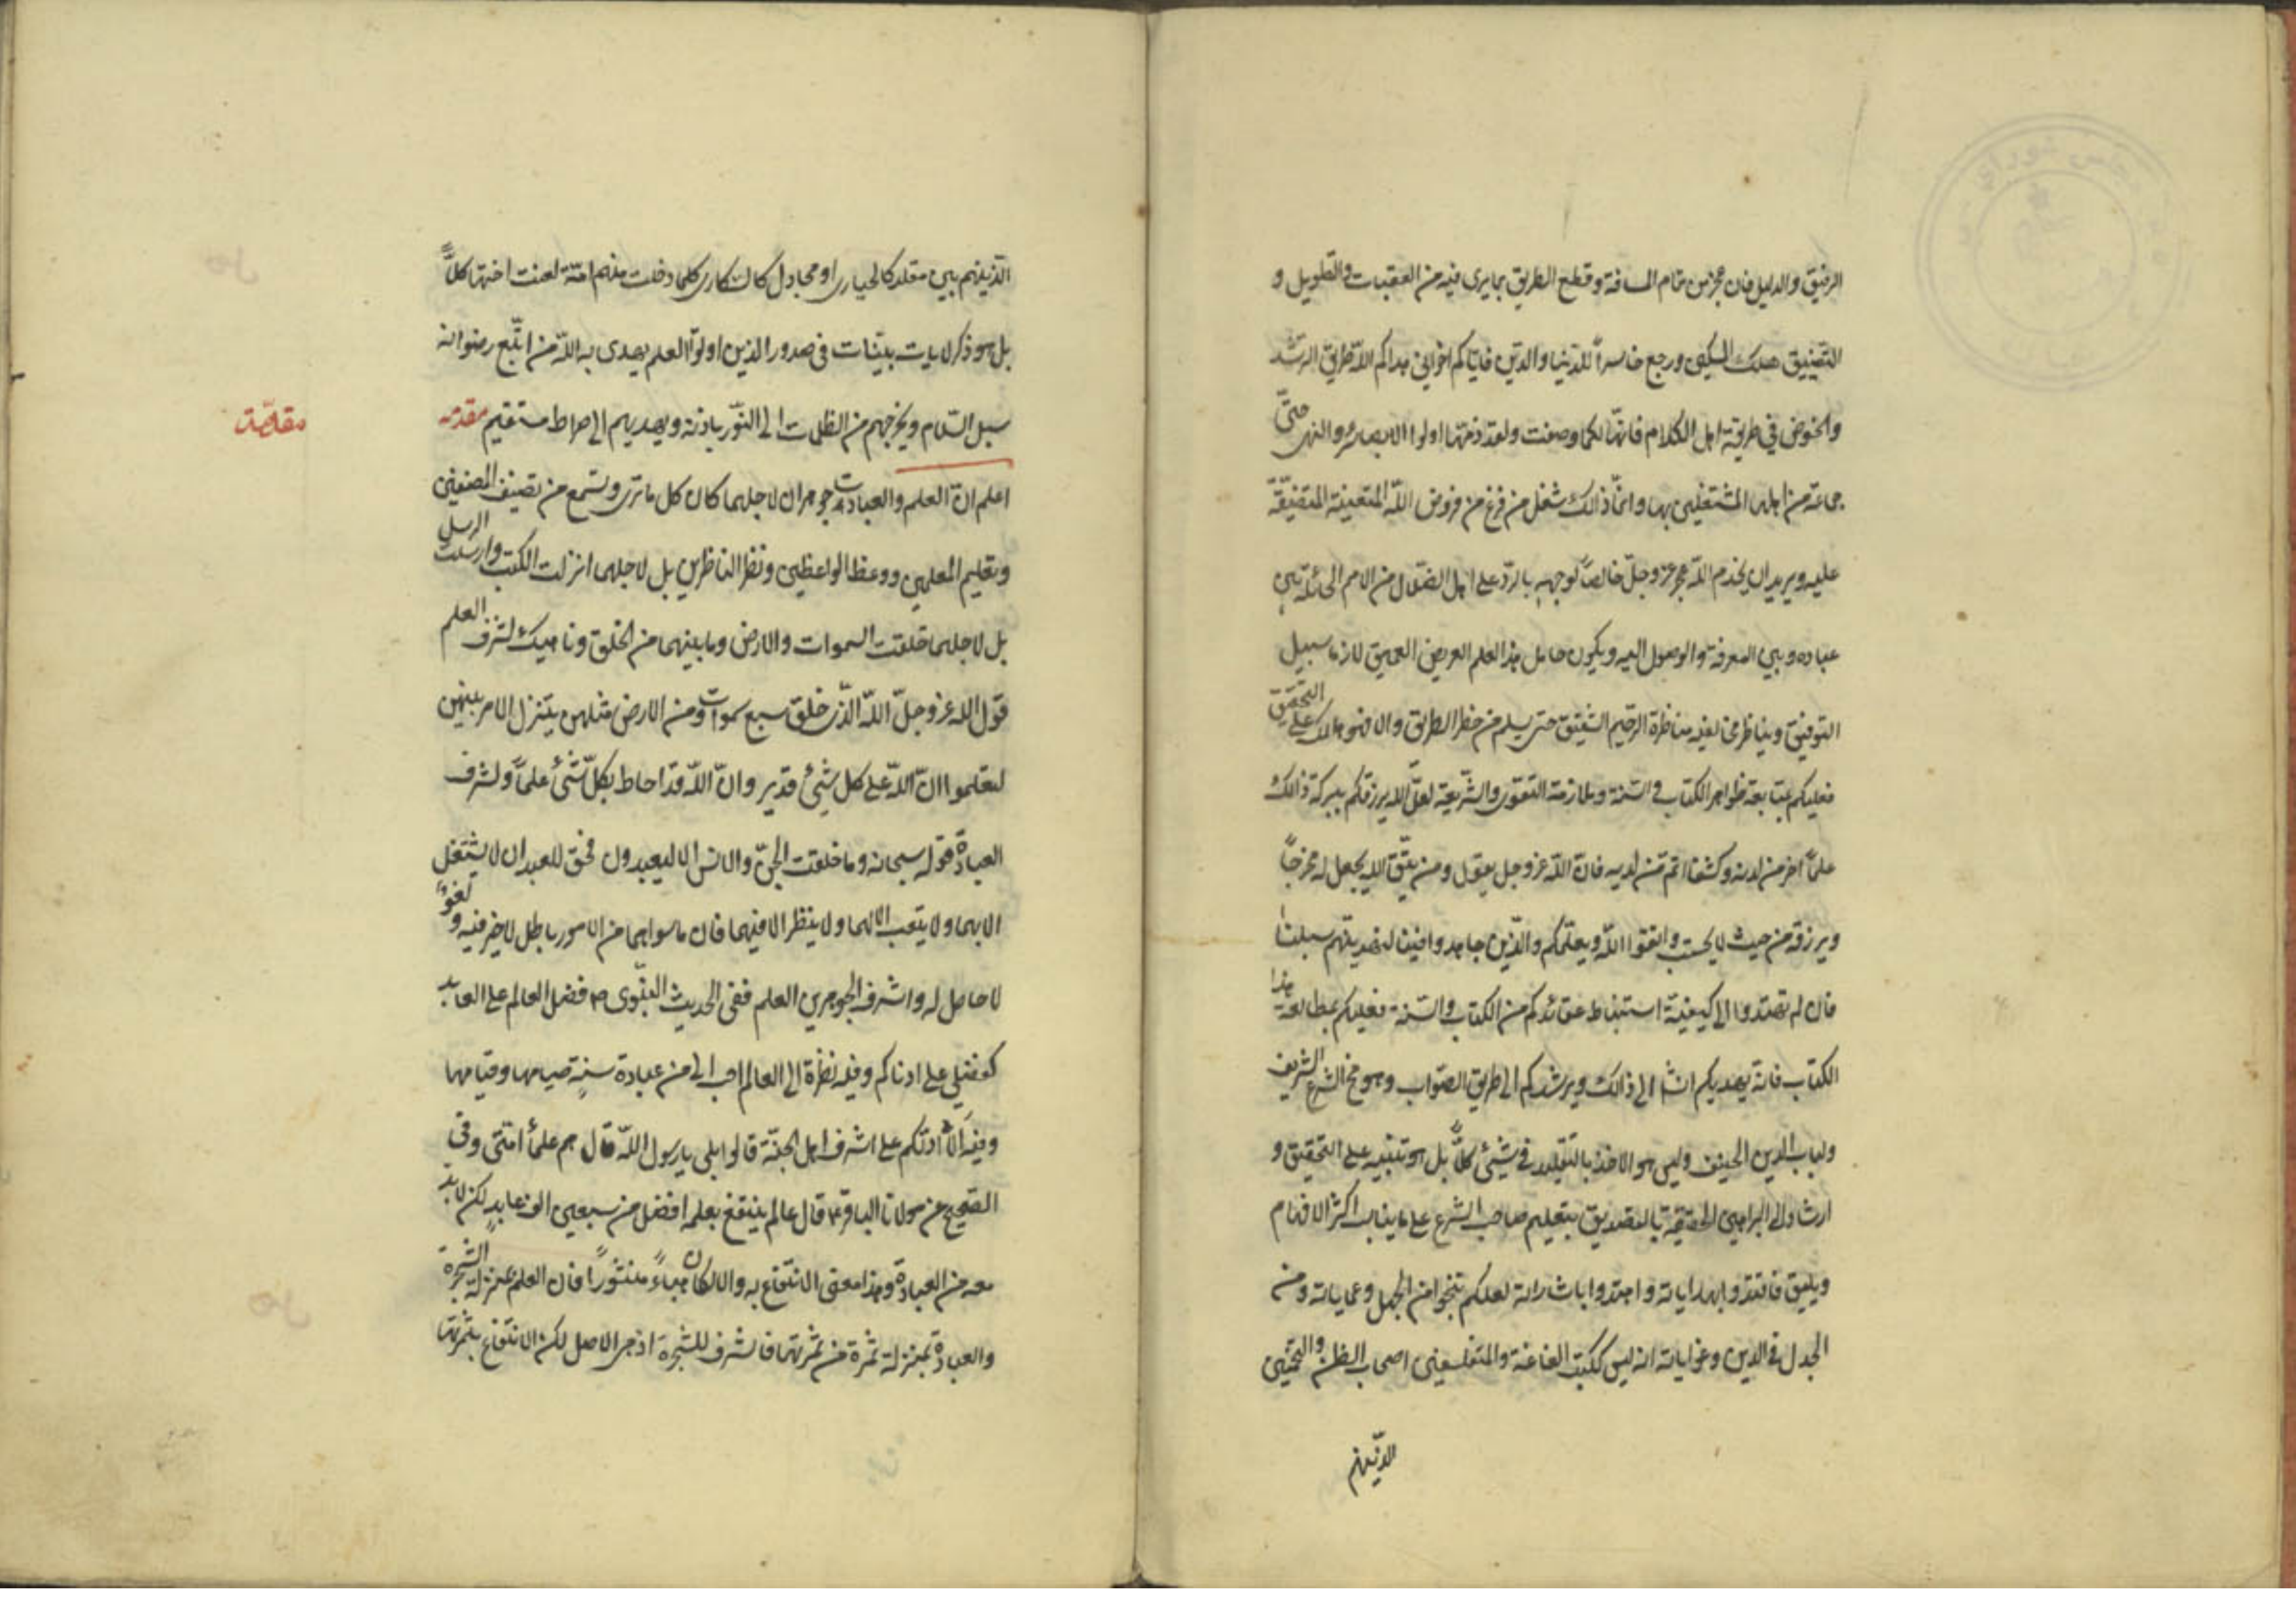 الرفيق والدليل فان عجز من تمام المسافة وقطع الطريق بما يرى فيه من العقبات والتطويل و
التضييق هلك المسكين ورجع خاسراً للدنيا والدين فاياكم اخواني هداكم الله طريق الرشد
والخوض في طريقة اهل الكلام فانها لكما وصفت ولقد ذمتها اولوا الابصار والنهى حتى
جماعة من اهلها المشتغلين بها وانما ذالك شغل من فرغ من فروض الله المتعينة المتضيقة
عليه ويريد ان يخدم الله عز وجل خالصاً لوجهه بالرد على اهل الضلال من الامم الحائلة بين
عباده وبين المعرفة والوصول اليه ويكون حامل هذا العلم العريض العميق لازما سبيل
التوفيق ويناظر مخالفيه مناظرة الرحيم الشفيق حتى يسلم من خطر الطريق والا فهو هالك على التحقيق
فعليكم بمتابعة ظواهر الكتاب والسنة وملازمة التقوى والشريعة لعل الله يرزقكم ببركة ذالك
علماً اخر من لدنه وكشفا اتم من لديه فان الله عز وجل يقول ومن يتق الله يجعل له مخرجاً
ويرزقه من حيث لا يحتسب واتقوا الله ويعلمكم والذين جاهدوا فينا لنهدينهم سبلنا
فان لم تهتدوا الى كيفية استنباط عقائدكم من الكتاب والسنة فعليكم بمطالعة هذا
الكتاب فانه يهديكم انشا الى ذالك ويرشدكم الى طريق الصواب وهو مخ الشرع الشريف
ولباب الدين الحنيف وليس هو الاخذ بالتقليد في شيئ كلاً بل هو تنبيه على التحقيق و
ارشاد الى البراهين الحقيقة بالتصديق بتعليم صاحب الشرع على ما يناسب اكثر الافهام
ويليق فاقتدوا بهداياته واهتدوا باشاراته لعلكم تنجوا من الجهل وعماياته ومن
الجدل في الدين وغواياته انه ليس ككتب الفاغنة والمتفلسفين اصحاب الظن والتخمين
الذينهم
الذينهم بين مقلد كالحيارى او مجادل كالسكارى كلما دخلت منهم امة لعنت اختها كلاً
بل هو ذكر لايات بينات في صدور الذين اولوا العلم يهدى به الله من اتبع رضوانه
سبل السلام ويخرجهم من الظلمات الى النور باذنه ويهديهم الى صراط مستقيم مقدمه
مقدمة
اعلم ان العلم والعبادت جوهران لاجلهما كان كل ما ترى وتسمع من تصنيف المصنفين
وتعليم المعلمين ووعظ الواعظين ونظر الناظرين بل لاجلهما انزلت الكتب وارسلت الرسل
بل لاجلهما خلقت السموات والارض وما بينهما من الخلق وناهيك لشرف العلم
قول الله عز وجل الله الذى خلق سبع سموات ومن الارض مثلهن يتنزل الامر بينهن
لتعلموا ان الله على كل شيئ قدير وان الله قد احاط بكل شيئ علماً ولشرف
العبادة قوله سبحانه وما خلقت الجن والانس الا ليعبدون فحق للعبد ان لا يشتغل
الا بهما ولا يتعب الا لهما ولا ينظر الا فيهما فان ما سواهما من الامور باطل لا خير فيه ولغو
لا حاصل له واشرف الجوهرين العلم ففى الحديث النبوى ص فضل العالم على العابد
كفضلي على ادناكم وفيه نظرة الى العالم احب الى من عبادة سنة صيامها وقيامها
وفيه الا ادلكم على اشرف اهل الجنة قالوا بلى يا رسول الله قال هم علمأ امتى وفى
الصحيح عن مولانا الباقر ع قال عالم ينتفع بعلمه افضل من سبعين الف عابد لكن لا بد
معه من العبادة وهذا معنى الانتفاع به والا لكان هباءً منثوراً فان العلم بمنزلة الشجرة
والعبادة بمنزلة ثمرة من ثمرتها فالشرف للشجرة اذ هى الاصل لكن الانتفاع بثمرتها